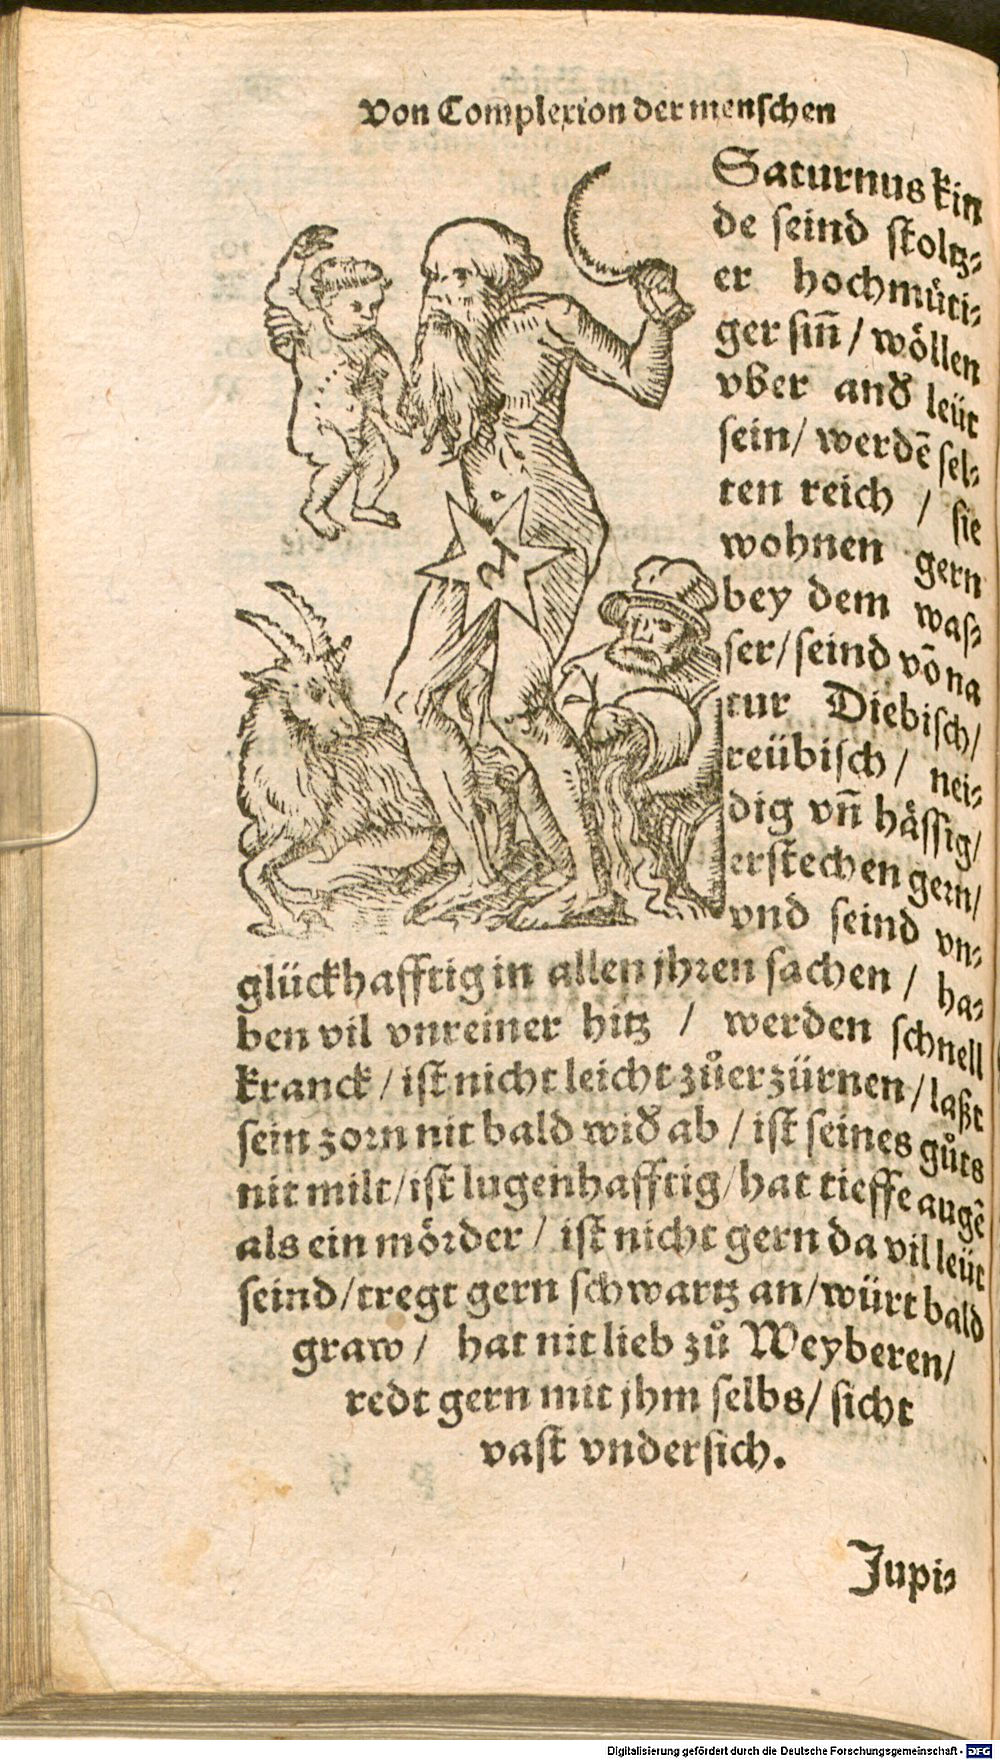 Von Complexion der menschen
Saturnus kin
de seind stoltz⸗
er hochmuͤti⸗
ger siñ / woͤllen
vber and̛ leüt
sein / werdẽ sel⸗
ten reich / sie
wohnen gern
bey dem was⸗
ser / seind võ na
tur Diebisch /
reübisch / nei⸗
dig vñ haͤssig /
erstechen gern /
vnd seind vn⸗
glückhafftig in allen jhren sachen / ha⸗
ben vil vnreiner hitz / werden schnell
kranck / ist nicht leicht zůerzürnen / laßt
sein zorn nit bald wid̛ ab / ist seines gůts
nit milt / ist lugenhafftig / hat tieffe augẽ
als ein moͤrder / ist nicht gern da vil leüt
seind / tregt gern schwartz an / würt bald
graw / hat nit lieb zů Weyberen /
redt gern mit jhm selbs / sicht
vast vndersich.
Jupi⸗
Digitalisierung gefördert durch die Deutsche Forschungsgemeinschaft - DFG